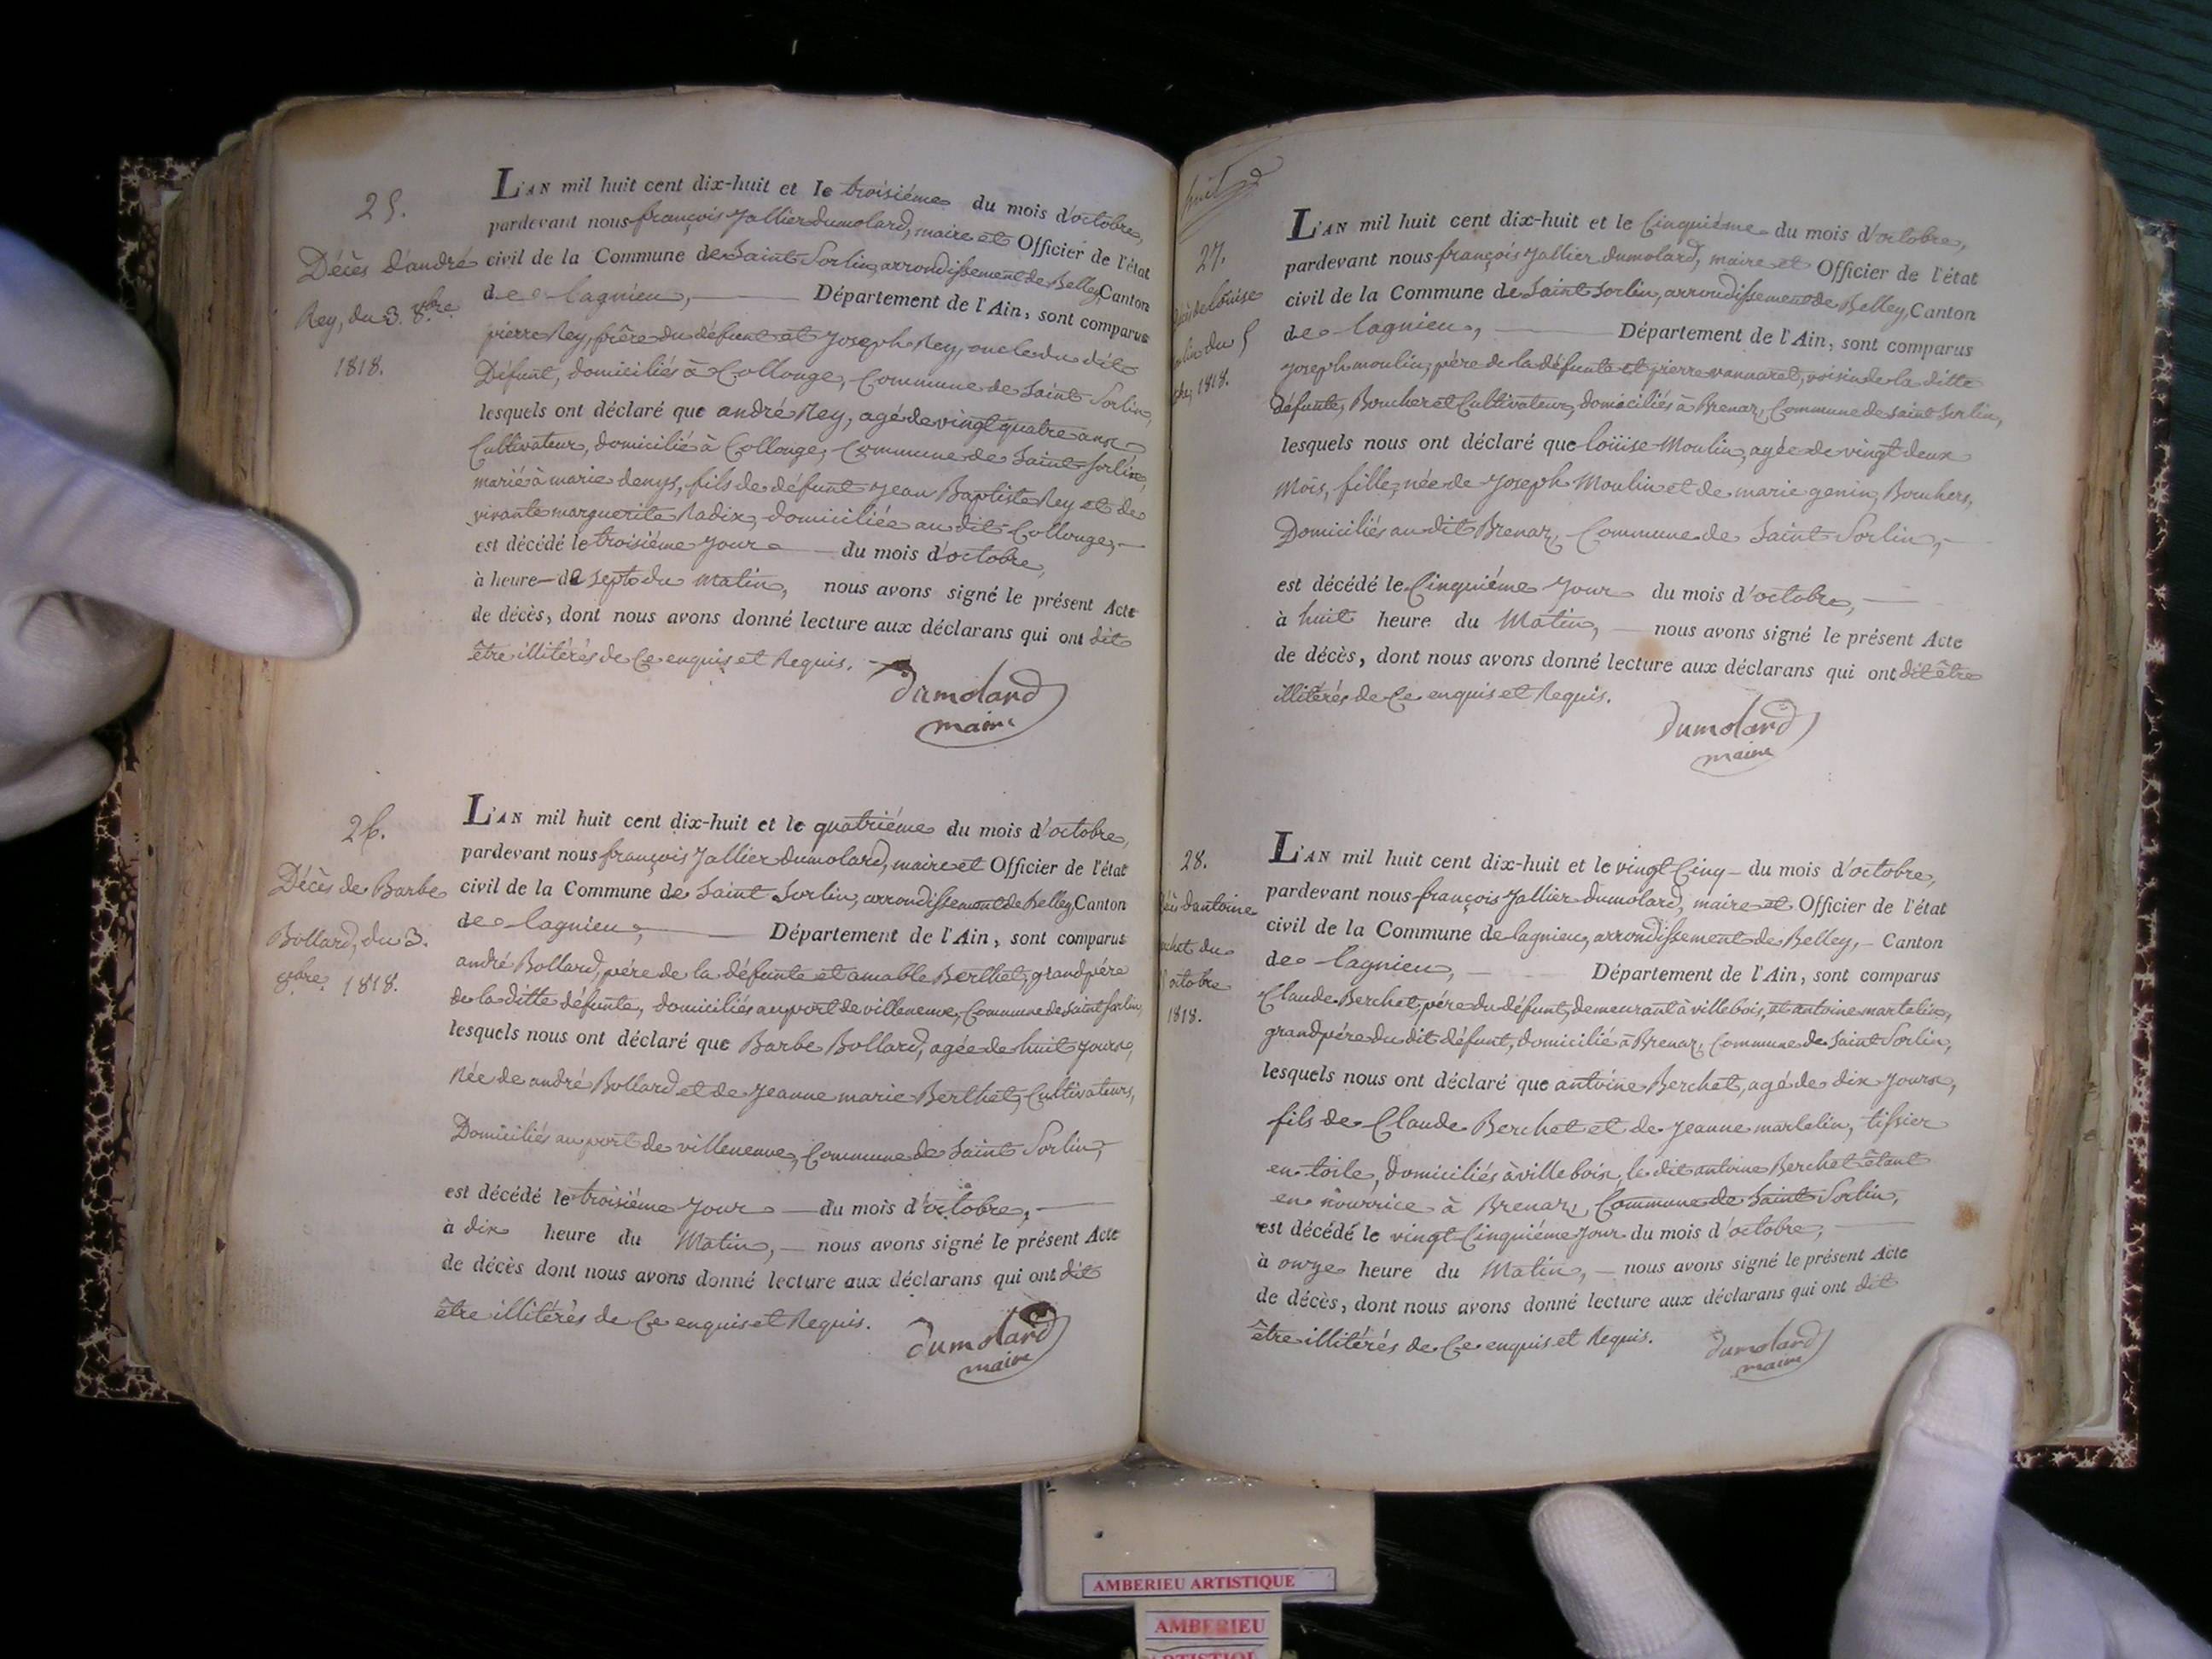 25.
Décès d'andré
Rey, du 3. 8.bre
1818.
L'AN mil huit cent dix-huit et le troisiéme du mois d'octobre,
pardevant nous françois Jallier dumolard, maire et Officier de l'état
civil de la Commune de Saint Sorlin, arrondissement de Belley, Canton
de lagnieu, Département de l'Ain, sont comparus
pierre Rey, frère du défunt et Joseph Rey, oncle du dit
Défunt, domiciliés à Collonge, Commune de Saint Sorlin,
lesquels ont déclaré que andré Rey, agé de vingt quatre ans
Cultivateur, domicilié à Collonge, Commune de Saint Sorlin,
marié à marie denys, fils de défunt Jean Baptiste Rey et de
vivante marguerite Radix, domiciliée au dit Collonge,
est décédé le troisiéme jour du mois d'octobre,
à heure de sept du matin, nous avons signé le présent Acte
de décès, dont nous avons donné lecture aux déclarans qui ont dit
être illitérés de Ce enquis et Requis.
Dumolard
maire
26.
Décès de Barbe
Bollard, du 3.
8.bre 1818.
L'AN mil huit cent dix-huit et le quatriéme du mois d'octobre,
pardevant nous françois Jallier dumolard, maire et Officier de l'état
civil de la Commune de Saint Sorlin, arrondissement de Belley, Canton
de lagnieu, Département de l'Ain, sont comparus
andré Bollard, pére de la défunte et amable Berthet, grand pére
de la ditte défunte, domiciliés au port de villeneuve, Commune de Saint Sorlin,
lesquels nous ont déclaré que Barbe Bollard, agée de huit jours,
née de andré Bollard et de Jeanne marie Berthet, Cultivateurs,
Domiciliés au port de villeneuve, Commune de Saint Sorlin,
est décédé le troisiéme jour du mois d'octobre,
à dix heure du Matin, nous avons signé le présent Acte
de décès dont nous avons donné lecture aux déclarans qui ont dit
être illitérés de Ce enquis et Requis.
Dumolard
maire
huit
27.
de loüise
du 5
1818.
L'AN mil huit cent dix-huit et le Cinquiéme du mois d'octobre,
pardevant nous françois Jallier dumolard, maire et Officier de l'état
civil de la Commune de Saint Sorlin, arrondissement de Belley, Canton
de lagnieu, Département de l'Ain, sont comparus
Joseph moulin, pére de la défunte et pierre vannaret, voisin de la ditte
défunte, Boucher et Cultivateur, domiciliés à Brenaz, Commune de Saint Sorlin,
lesquels nous ont déclaré que loüise Moulin, agée de vingt deux
Mois, fille, née de Joseph Moulin et de marie genin, Bouchers,
Domiciliés au dit Brenaz, Commune de Saint Sorlin,
est décédé le Cinquiéme jour du mois d'octobre,
à huit heure du Matin, nous avons signé le présent Acte
de décès, dont nous avons donné lecture aux déclarans qui ont dit être
illitérés de Ce enquis et Requis.
Dumolard
maire
28.
d'antoine
du
octobre
1818.
L'AN mil huit cent dix-huit et le vingt Cinq du mois d'octobre,
pardevant nous françois Jallier dumolard, maire et Officier de l'état
civil de la Commune de lagnieu, arrondissement de Belley, Canton
de lagnieu, Département de l'Ain, sont comparus
Claude Berchet, pére du défunt, demeurant à villebois, et antoine martelin,
grand pére du dit défunt, domicilié à Brenaz, Commune de Saint Sorlin,
lesquels nous ont déclaré que antoine Berchet, agé de dix jours,
fils de Claude Berchet et de Jeanne martelin, tissier
en toile, domiciliés à villebois, le dit antoine Berchet étant
en nourrice à Brenaz, Commune de Saint Sorlin,
est décédé le vingt Cinquiéme jour du mois d'octobre,
à onze heure du Matin, nous avons signé le présent Acte
de décès, dont nous avons donné lecture aux déclarans qui ont dit
être illitérés de Ce enquis et Requis.
Dumolard
maire
AMBERIEU ARTISTIQUE
AMBERIEU
ARTISTIQUE